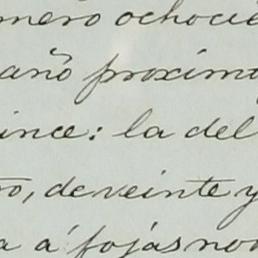 mero ochocie
año proximo
ince: la del
o, de veinte y
a á fojas no